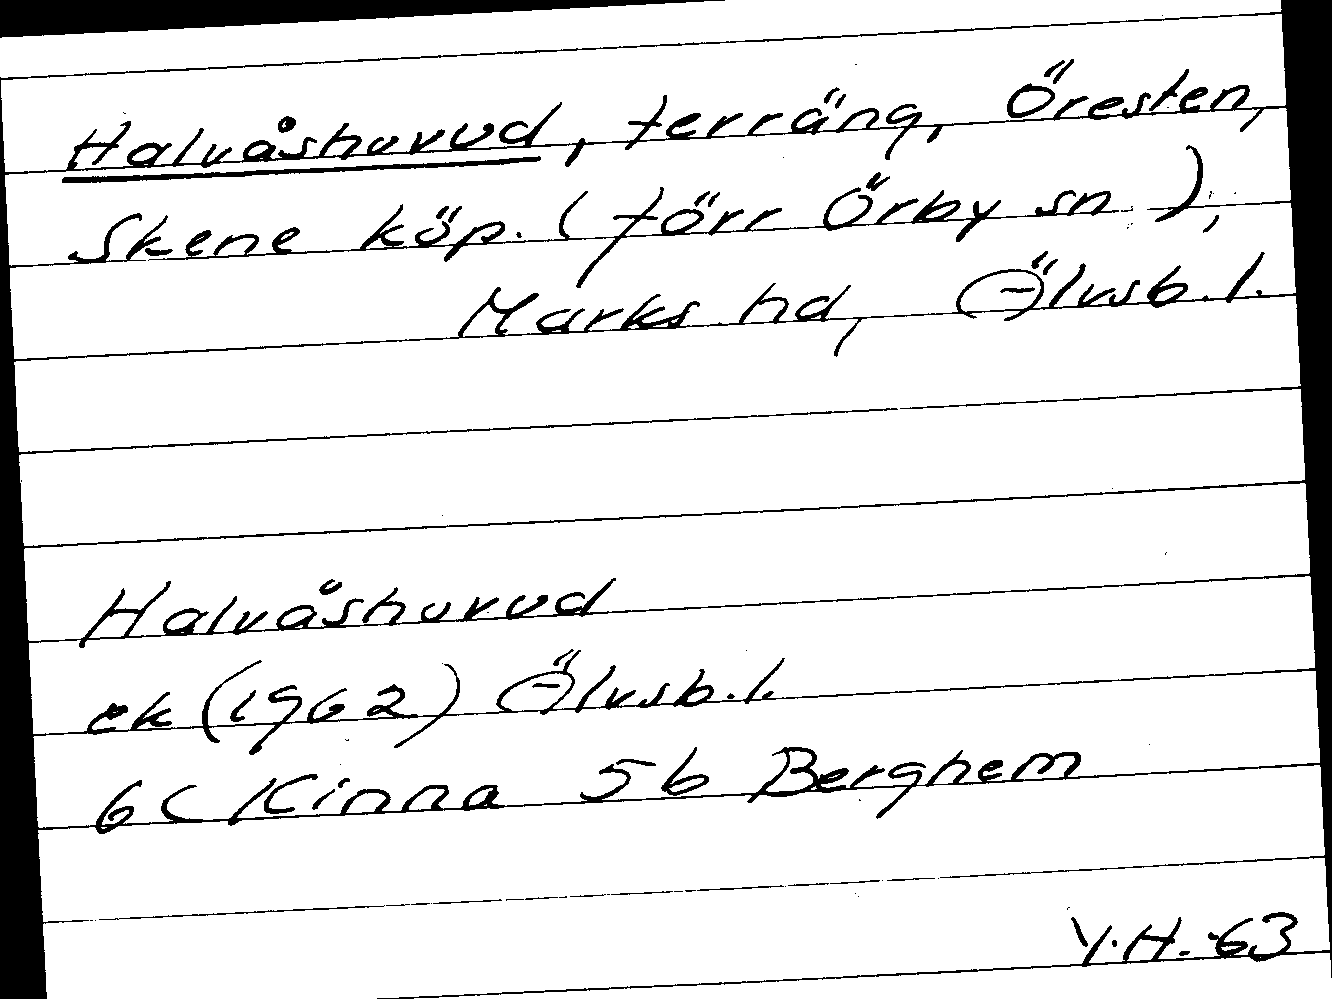 Halvåshuvud, terräng, Öresten,
Skene köp. (förr Örby sn),
Marks hd, Älvsb.l.
Halvåshuvud
ek (1962) Älvsb.l.
6C Kinna 5b Berghem
Y.H. -63